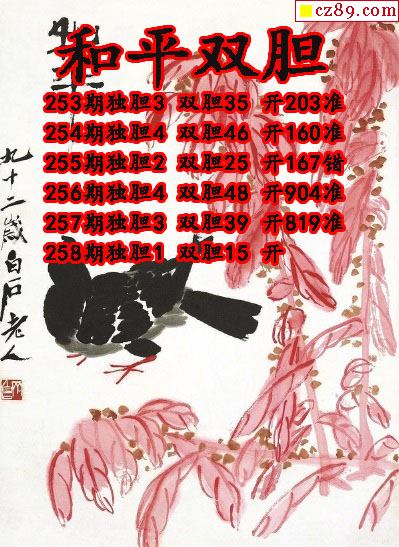 cz89.com
和平双胆
253期独胆3 双胆35 开203准
254期独胆4 双胆46 开160准
255期独胆2 双胆25 开167错
256期独胆4 双胆48 开904准
257期独胆3 双胆39 开819准
258期独胆1 双胆15 开
九十二岁白石老人